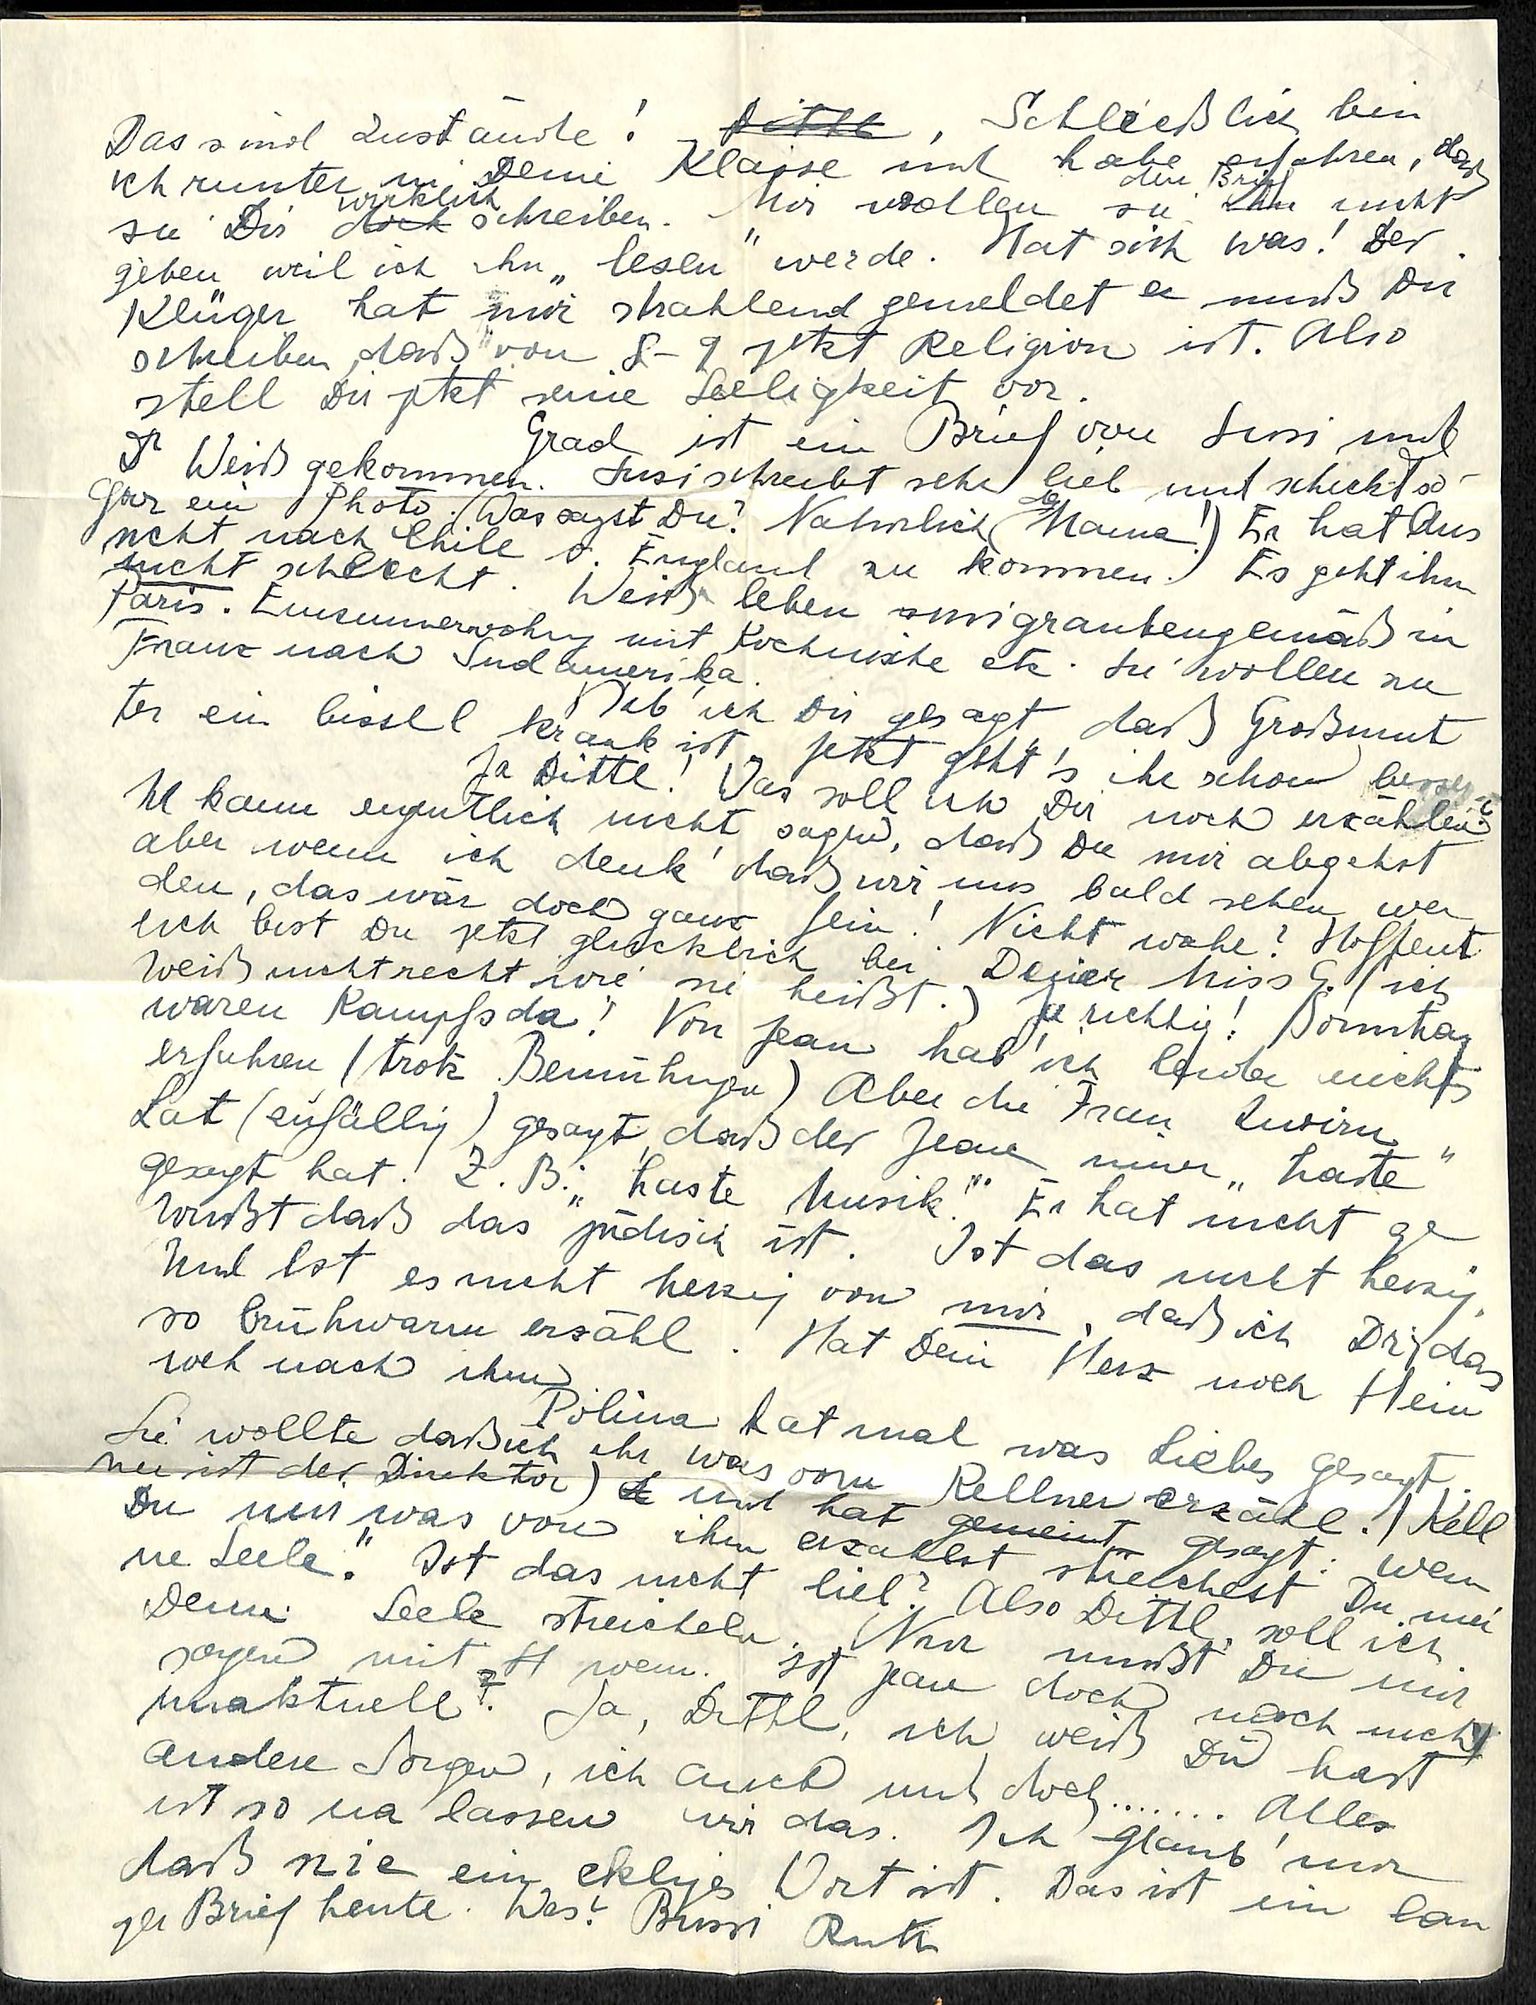 Das sind Zustände! Dittl, Schließlich bin
ich runter in Deine Klasse und habe erfahren, daß
sie Dir doch wirklich schreiben. Mir wollen sie ihn den Brief nicht
geben weil ich ihn „lesen" werde. Hat sich was! Der
Klüger hat mir strahlend gemeldet er muß Dir
schreiben, daß von 8-9 jetzt Religion ist. Also
stell Dir jetzt seine Seeligkeit vor.
Grad ist ein Brief von Susi und
Dr Weiß gekommen. Susi schreibt sehr lieb und schickt so-
gar ein Photo. (Was sagst Du? Natürlich (die Mama!) Er hat Aus
sicht nach Chile o. England zu kommen.) Es geht ihm
nicht schlecht. Weiß leben emigrantengemäß in
Paris. Einzimmerwohng mit Kochnische etc. Sie wollen zu
Franz nach Südamerika.
Hab' ich Dir gesagt daß Großmut
ter ein bissel krank ist. Jetzt geht's ihr schon besser.
Ja Dittl! Was soll ich Dir noch erzählen?
Ich kann eigentlich nicht sagen, daß Du mir abgehst
aber wenn ich denk' daß wir uns bald sehen wer
den, das wär doch ganz fein! Nicht wahr? Hoffent
lich bist Du jetzt glücklich bei Deiner Miss G. (ich
weiß nicht recht wie sie heißt.) Ja richtig! Sonntag
waren Kampfs da! Von Jean hab' ich leider nichts
erfahren (trotz Bemühungen) Aber die Frau Zwirn
hat (zufällig) gesagt, daß der Jean immer „haste"
gesagt hat. Z. B.: „haste Musik!" Er hat nicht ge
wußt daß das jüdisch ist. Ist das nicht herzig.
Und ist es nicht herzig von mir, daß ich Dir das
so brühwarm erzähl. Hat Dein Herz noch Heim
weh nach ihm
Polina hat mal was Liebes gesagt.
Sie wollte daß ich ihr was vom Kellner erzähl. (Kell
ner ist der Direktor) und hat gemeint gesagt: wenn
Du mir was von ihm erzählst streichelst Du mei
ne Seele." Ist das nicht lieb? Also Dittl, soll ich
Deine Seele streicheln. Nur mußt Du mir
sagen mit wem. Ist Jean doch noch nicht
unaktuell? Ja, Dittl, ich weiß Du hast
andere Sorgen, ich auch und doch....... Alles
ist so na lassen wir das. Ich glaub' nur
daß nie ein ekliges Wort ist. Das ist ein lan
ger Brief heute. Was? Bussi Ruth